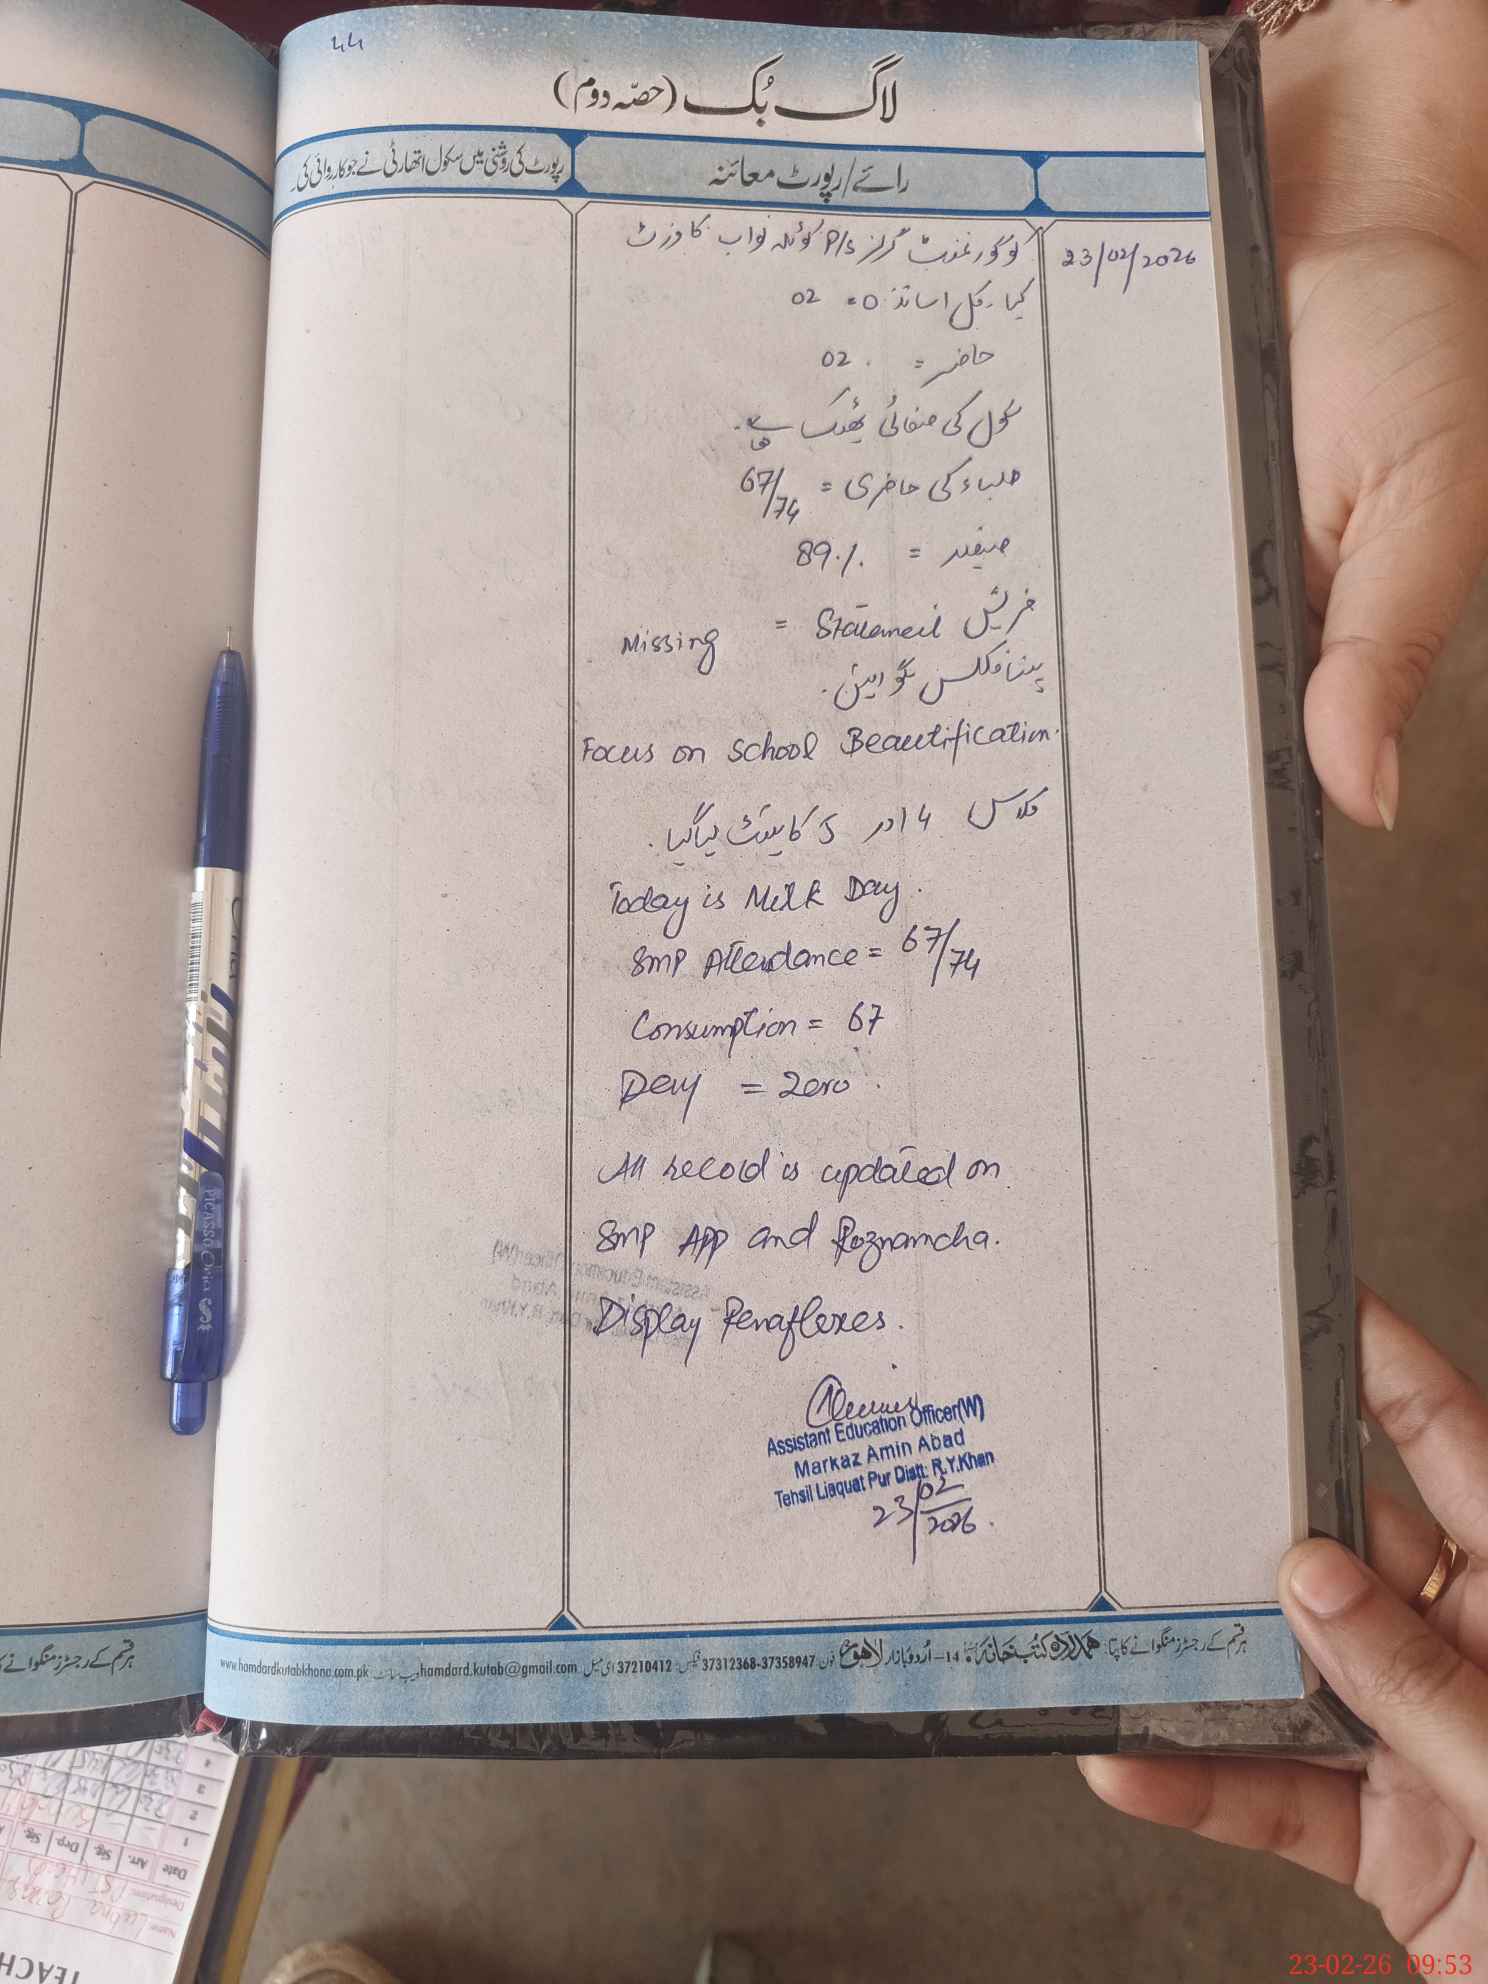 44
لاگ بُک (حصّہ دوم)
رائے/رپورٹ معائنہ
رپورٹ کی روشنی میں سکول اتھارٹی نے جو کارروائی کی۔
23/02/2026
کو گورنمنٹ گرلز P/S کوٹلہ نواب کا وزٹ
کیا۔ کل اساتذہ = 02
حاضر = 02
سکول کی صفائی ٹھیک ہے۔
طلباء کی حاضری = 67/74
= 89%
Statement = Missing
پینافلکس لگوائیں۔
Focus on School Beautification.
کلاس 4 اور 5 کا ٹیسٹ لیا گیا۔
Today is Milk Day.
SMP Attendance = 67/74
Consumption = 67
= Zero.
All record is updated on
SMP APP and Roznamcha.
Display Penaflexes.
Assistant Education Officer(W)
Markaz Amin Abad
Tehsil Liaquat Pur Distt: R.Y.Khan
23/02/2026.
ہر قسم کے رجسٹرز منگوانے کا پتا: ہمدرد کتب خانہ 14-اُردو بازار لاہور فون: 37312368-37358947 فیکس: 37210412 ای میل hamdard.kutab@gmail.com ویب سائٹ www.hamdardkutabkhana.com.pk
ہر قسم کے رجسٹرز منگوانے کا
PICASSO Orien
TEACH
Name:
Designation: PST
Date Arr. Sig. Dep. Sig.
1
2
3
4
23-02-26 09:53